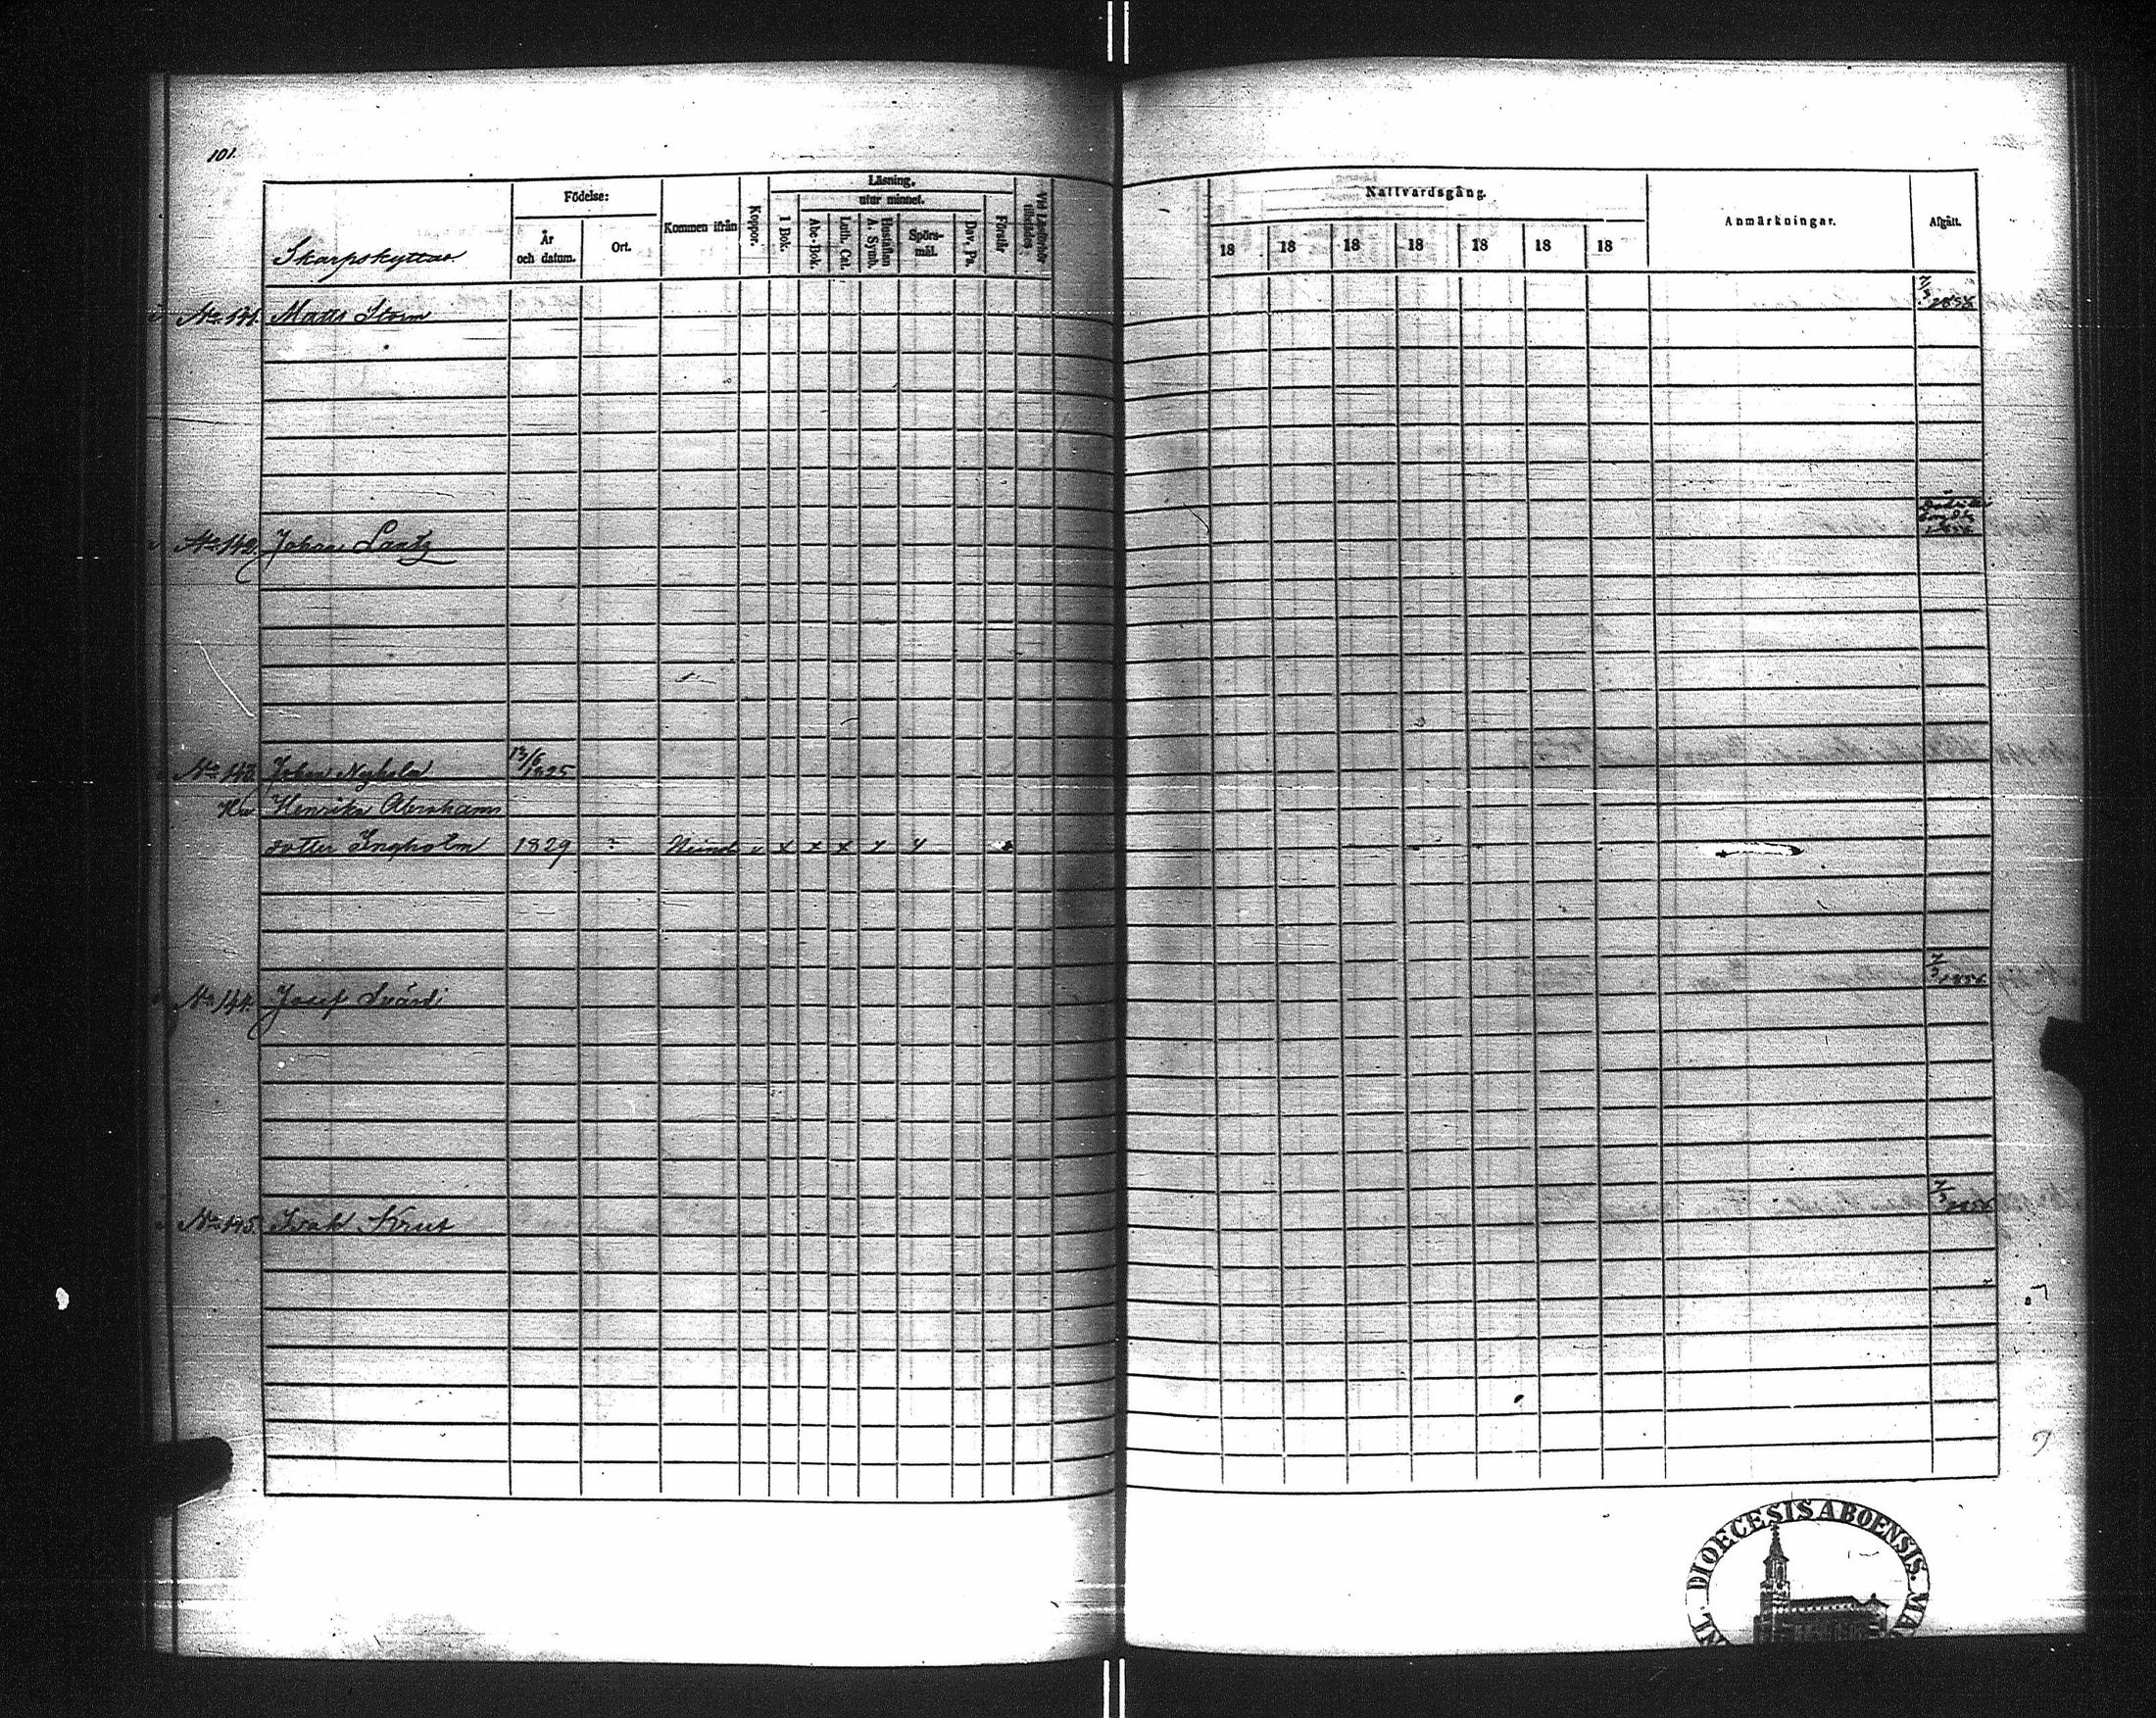 101.
Skarpskyttar.
Födelse:
År och datum.
Ort.
Kommen ifrån
Koppor.
Läsning.
I Bok.
utur minnet.
Abc-Bok.
Luth. Cat.
Hustaflan A. Symb.
Spörs-mål.
Dav. Ps.
Förstår
Nattvardsgång.
18 18 18 18 18 18 18
Anmärkningar.
Afgått.
No. 141. Matts Storm
7/3 1856
No. 142. Johan Lantz
No. 143. Johan Nyholm 13/6 1825
Hu Henrika Abrahams
dotter Ingholm 1829 ? x x x
No. 144. Josef Svärd
7/3 1856.
No. 145. Isak Krut
7/3 1856
DIOECESIS ABOENSIS.